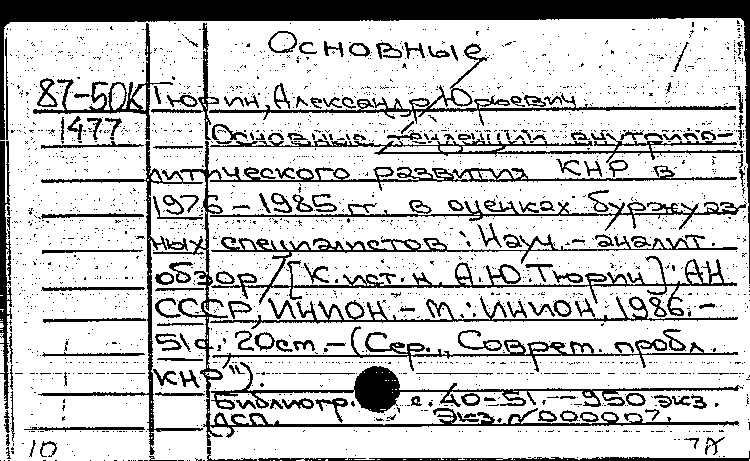 Основные
87-50К Тюрин, Александр Юрьевич
1477 Основные тенденции внутрипо-
литического развития КНР в
1976-1985 гг. в оценках буржуаз-
ных специалистов : Науч.-аналит.
обзор / [К. ист. н. А.Ю. Тюрин]; АН
СССР, ИНИОН. - М. : ИНИОН, 1986. -
51 с.; 20 см. - (Сер. „Соврем. пробл.
КНР").
Библиогр. с. 40-51. - 950 экз.
ДСП. Экз. N 000007.
10